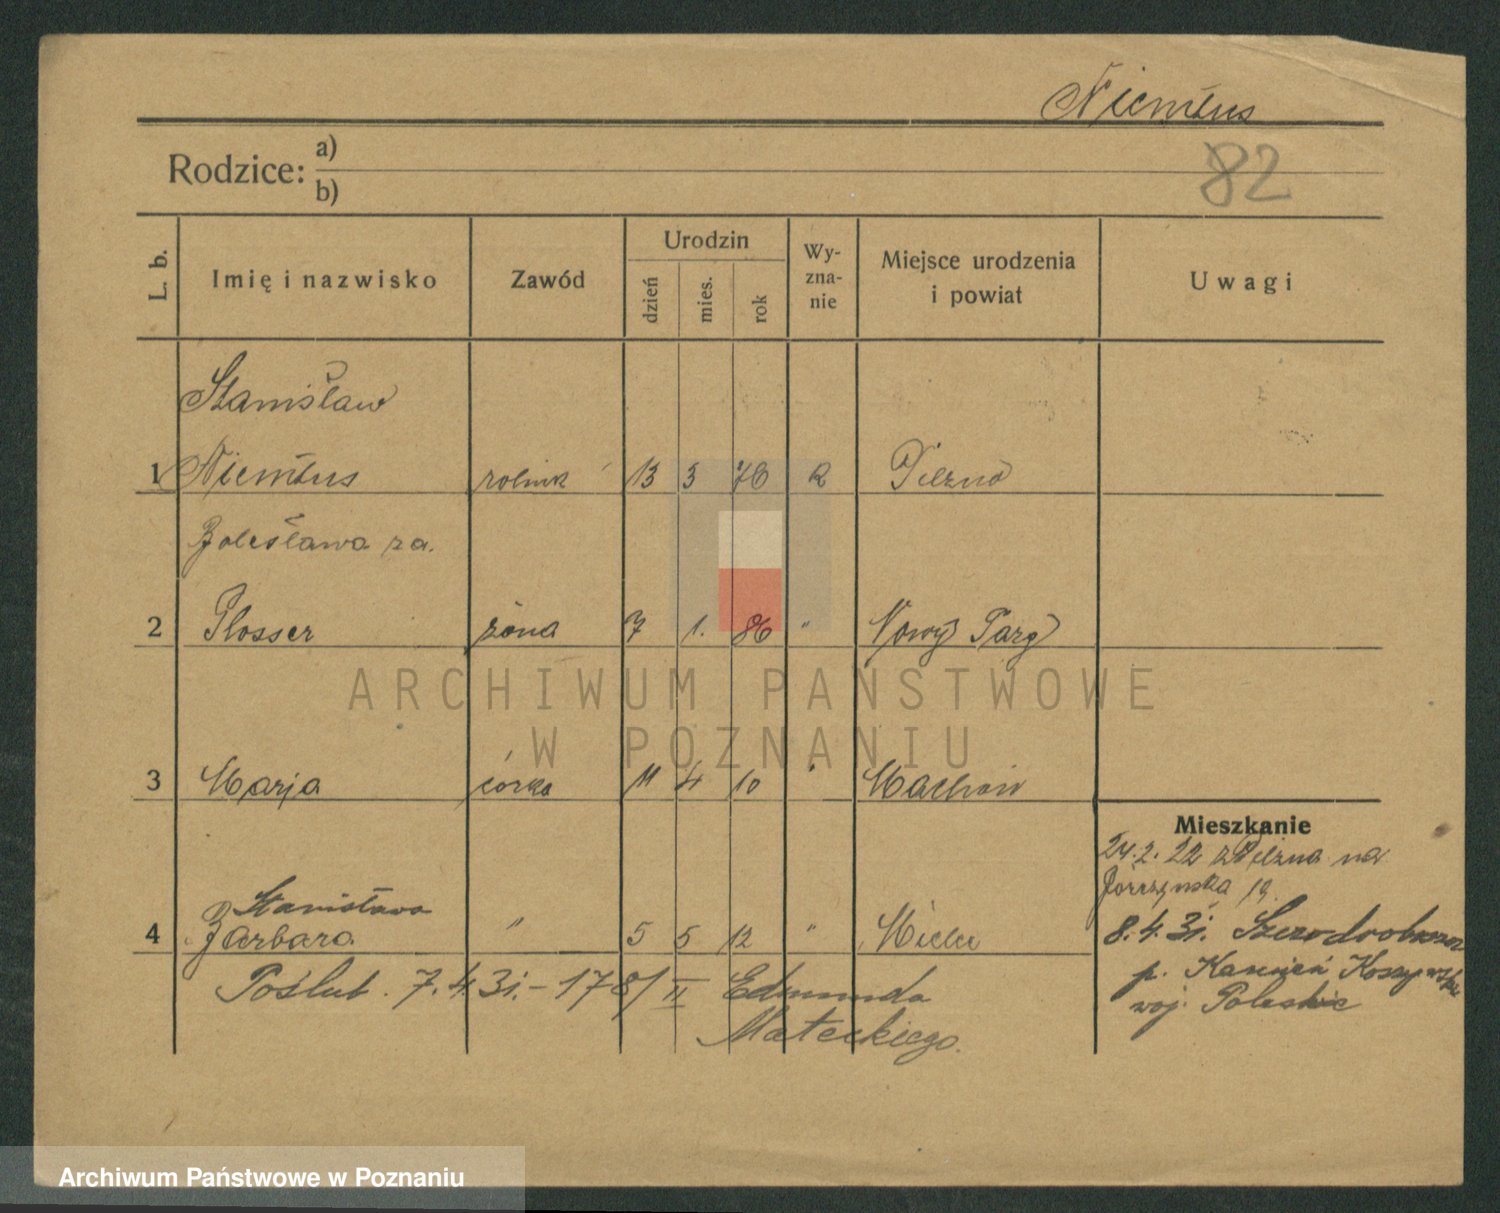 Niemtus
82
Rodzice: a)
b)
L. b.
Imię i nazwisko
Zawód
Urodzin
dzień
mies.
rok
Wy-
zna-
nie
Miejsce urodzenia
i powiat
Uwagi
Stanisław
1 Niemtus rolnik 13 3 76 R Pilzno
Bolesława za.
2 Plosser żona 7 1. 86 " Nowy Targ
3 Marja córka 11 4 10 " Machów
Mieszkanie
24. 2. 22 z Pilzna na
19.
Stanisława
4 Barbara " 5 5 12 " Mielec
8. 4. 31.
p. Kamień Koszyrski
woj. Poleskie
Poślub. 7. 4. 31. - 178/II Edmunda
Małeckiego.
ARCHIWUM PAŃSTWOWE
W POZNANIU
Archiwum Państwowe w Poznaniu